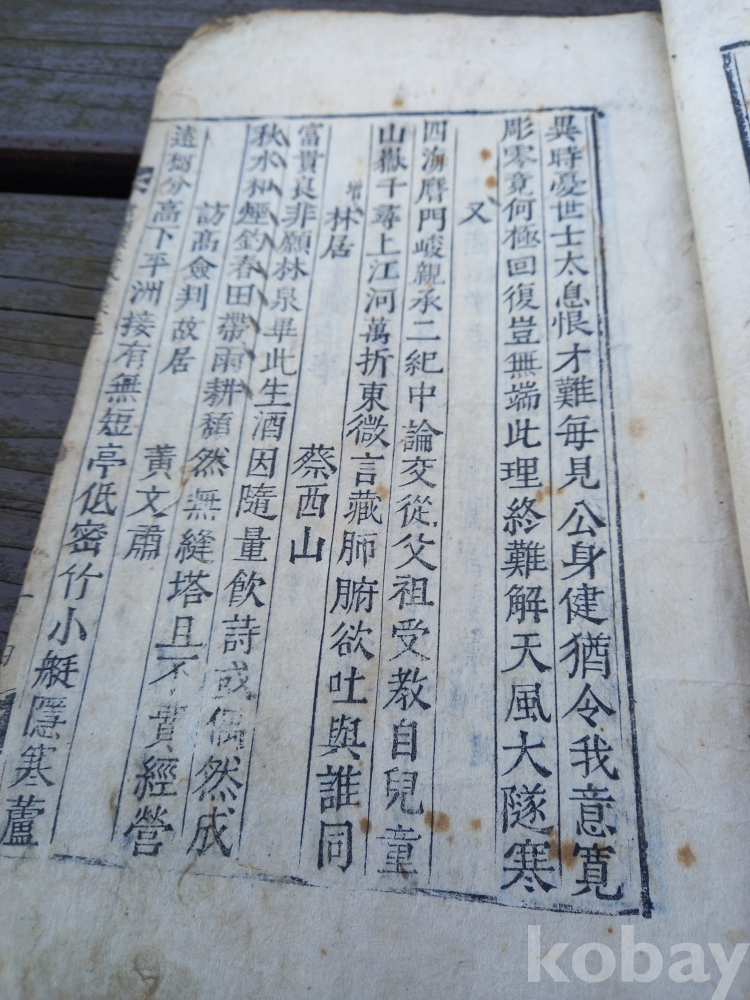 異時憂世士太息恨才難每見公身健猶令我意寬
彫零竟何極回復豈無端此理終難解天風大隧寒
又
四海膺門峻親承二紀中論交從父祖受教自兒童
山嶽千尋上江河萬折東微言藏肺腑欲吐與誰同
增 林居 蔡西山
富貴良非願林泉畢此生酒因隨量飮詩或偶然成
秋水和煙釣春田帶雨耕䫏然無縫塔且不費經營
訪高僉判故居 黃文肅
遠樹分高下平洲接有無短亭低密竹小艇隱寒蘆
kobay